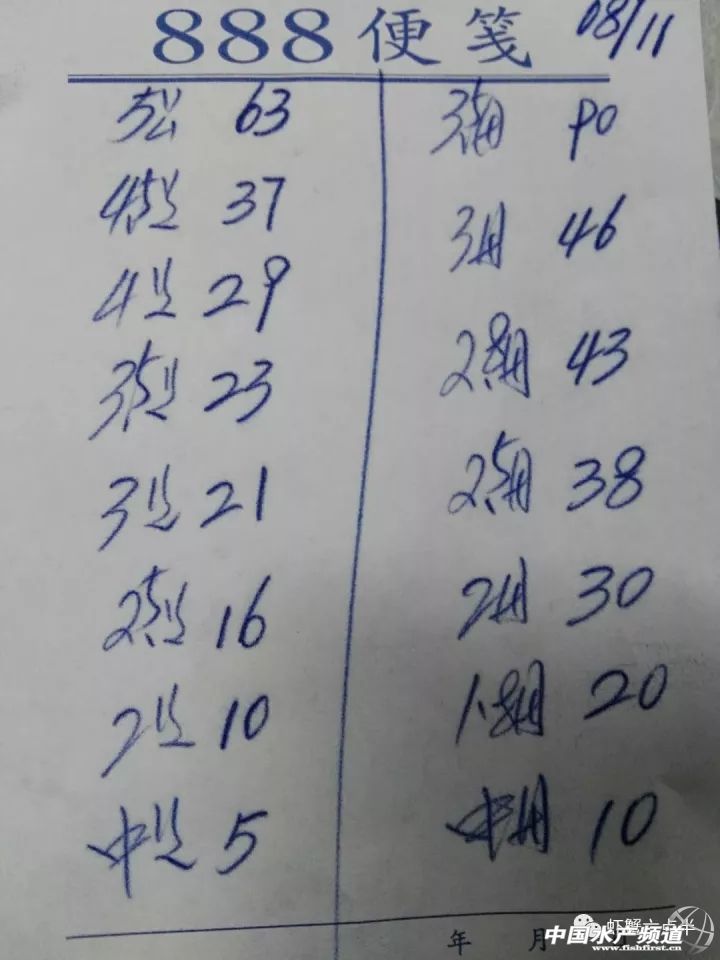 888便笺 08/11
5公 63
4.5公 37
4公 29
3.5公 23
3公 21
2.5公 16
2公 10
中公 5
3.5母 90
3母 46
2.8母 43
2.5母 38
2母 30
1.8母 20
中母 10
年 月
虾蟹六点半
中国水产频道
www.fishfirst.cn